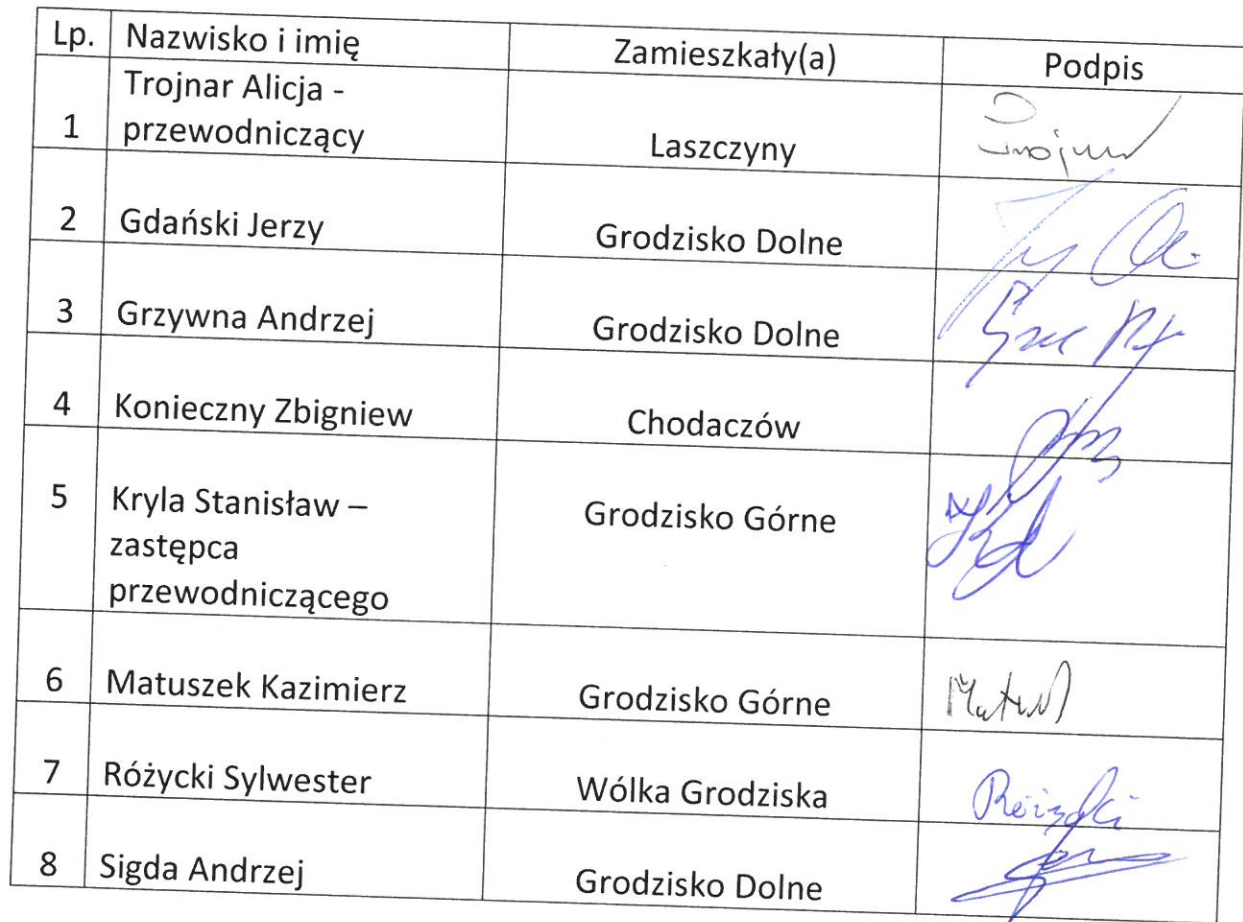 Lp. Nazwisko i imię Zamieszkały(a) Podpis
1 Trojnar Alicja -
przewodniczący Laszczyny
2 Gdański Jerzy Grodzisko Dolne
3 Grzywna Andrzej Grodzisko Dolne
4 Konieczny Zbigniew Chodaczów
5 Kryla Stanisław – Grodzisko Górne
zastępca
przewodniczącego
6 Matuszek Kazimierz Grodzisko Górne
7 Różycki Sylwester Wólka Grodziska
8 Sigda Andrzej Grodzisko Dolne